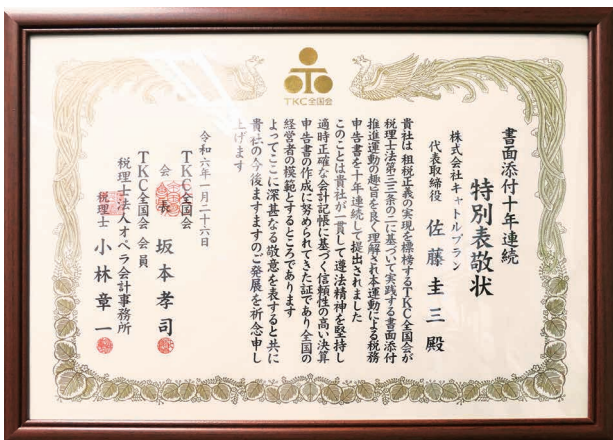 TKC全国会
書面添付十年連続
特別表敬状
株式会社キャトルプラン
代表取締役 佐藤圭三殿
貴社は租税正義の実現を標榜するTKC全国会が
税理士法第三三条の二に基づいて実践する書面添付
推進運動の趣旨を良く理解され本運動による税務
申告書を十年連続して提出されました
このことは貴社が一貫して遵法精神を堅持し
適時正確な会計記帳に基づく信頼性の高い決算
申告書の作成に努められてきた証であり全国の
経営者の模範とするところであります
よってここに深甚なる敬意を表すると共に
貴社の今後ますますのご発展を祈念申し
上げます
令和六年一月二十六日
TKC全国会
会長 坂本孝司
TKC全国会会員
税理士法人オペラ会計事務所
税理士 小林章一